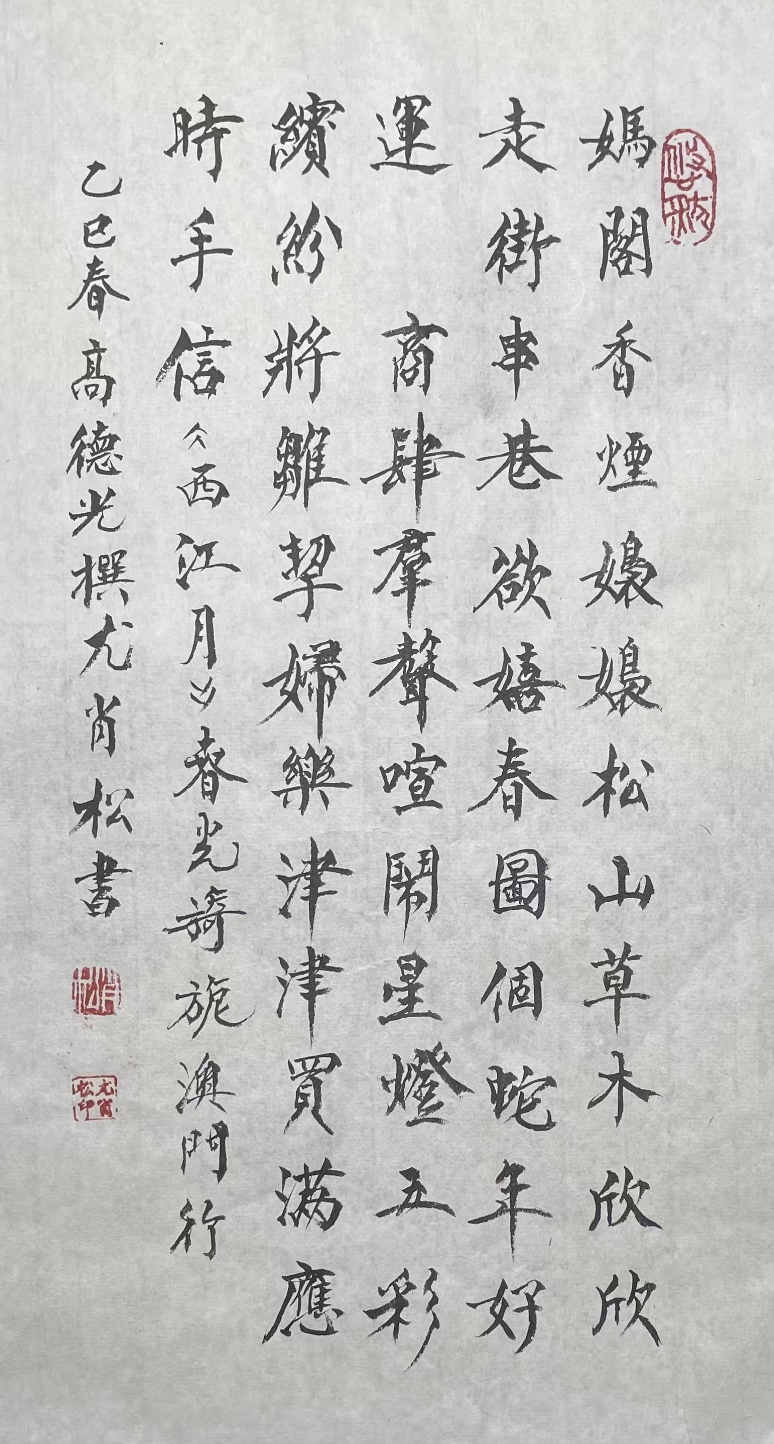 媽閣香煙嬝嬝松山草木欣欣
走街串巷欲嬉春圖個蛇年好
運　商肆羣聲喧鬧星燈五彩
繽紛將雛挈婦樂津津買滿應
時手信《西江月》春光旖旎澳門行
乙巳春高德光撰尤肖松書
尤肖松印